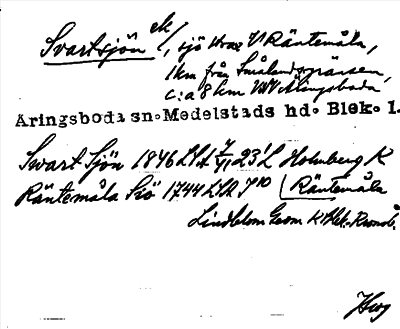 Svartsjön ek/, sjö strax V Räntemåla,
1 km från Smålandsgränsen,
c:a 8 km VNV Aringsboda
Aringsboda sn. Medelstads hd. Blek. l.
Swart Sjön 1846 LSA 7/11 23 L Holmberg K
Räntemåla Siö 1744 LSA J10 Räntemåla
Lindblom Geom K Blek. Kronob.